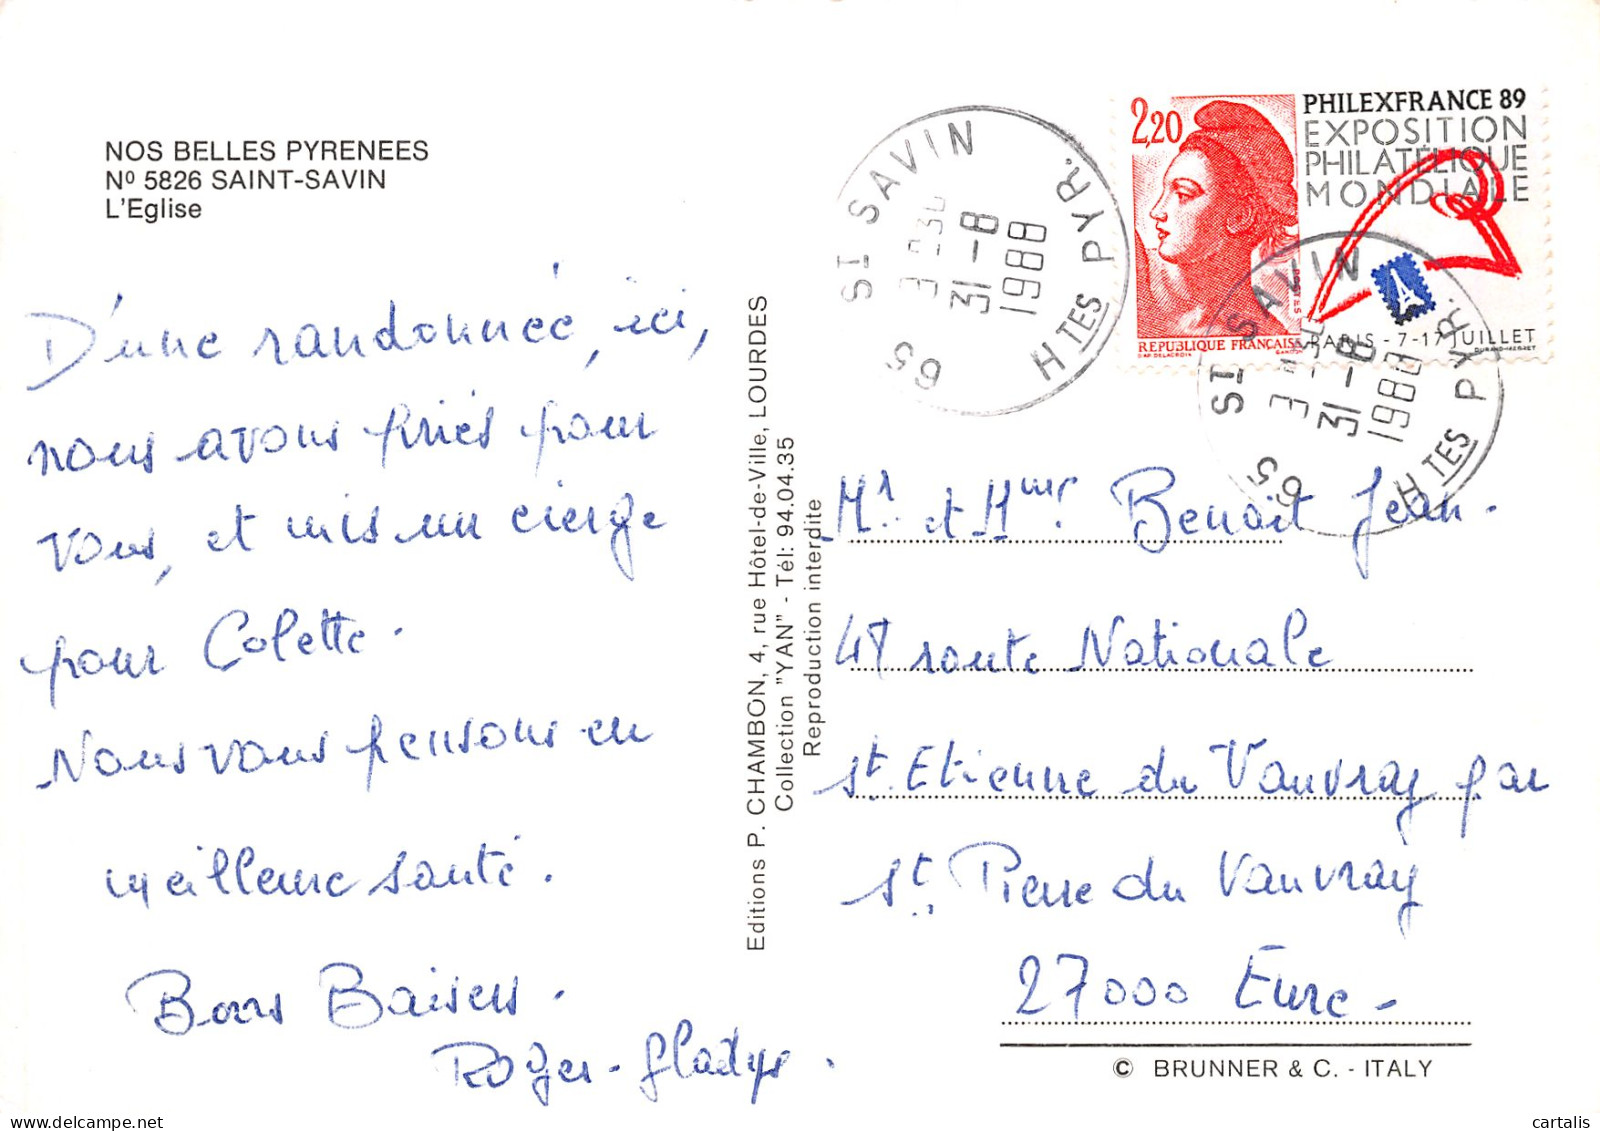 NOS BELLES PYRENEES
Nº 5826 SAINT-SAVIN
L'Eglise
D'une randonnée, ici,
nous avons priés pour
vous, et mis un cierge
pour Colette.
Nous vous pensons en
meilleure santé.
Bons Baisers.
Roger-Gladys.
Editions P. CHAMBON, 4, rue Hôtel-de-Ville, LOURDES
Collection "YAN" - Tél: 94.04.35
Reproduction interdite
ST SAVIN
31-8
1988
65 HTES PYR.
2,20
REPUBLIQUE FRANCAISE
PHILEXFRANCE 89
EXPOSITION
PHILATÉLIQUE
MONDIALE
PARIS - 7-17 JUILLET
ST SAVIN
31-8
1988
65 HTES PYR.
Mr. et Mme. Benoit Jean.
route Nationale
St Etienne du Vauvray par
St. Pierre du Vauvray
27000 Eure-
© BRUNNER & C. - ITALY
cartalis